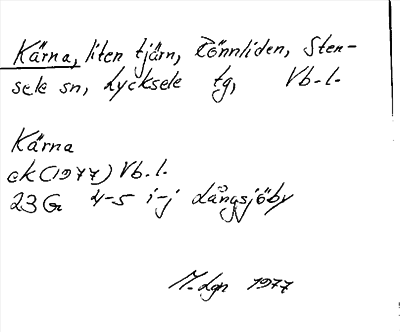 Kärna, liten tjärn, Rönnliden, Sten-
sele sn, Lycksele tg, Vb.l.
Kärna
ek (1977) Vb.l.
23 G 4-5 i-j Långsjöby
M. Lgn 1977